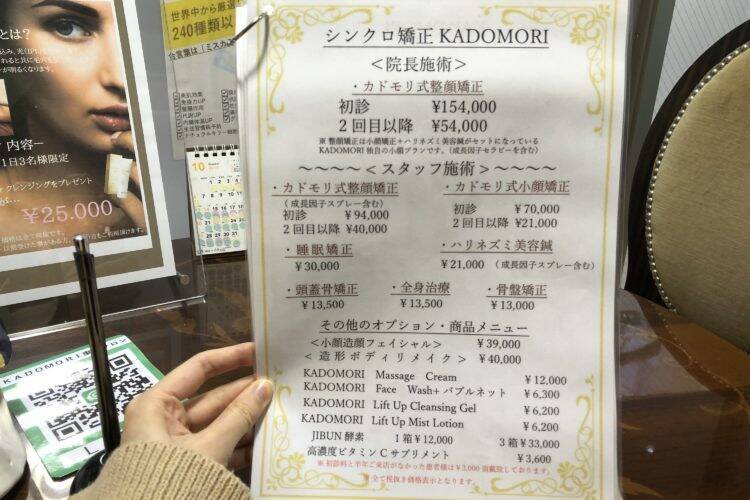 シンクロ矯正 KADOMORI
＜院長施術＞
・カドモリ式整顔矯正
初診 ¥154,000
2回目以降 ¥54,000
※ 整顔矯正は小顔矯正＋ハリネズミ美容鍼がセットになっている
KADOMORI 独自の小顔プランです。（成長因子セラピーを含む）
～～～～＜スタッフ施術＞～～～～
・カドモリ式整顔矯正
（成長因子スプレー含む）
初診 ¥94,000
2回目以降 ¥40,000
・カドモリ式小顔矯正
初診 ¥70,000
2回目以降 ¥21,000
・睡眠矯正
¥30,000
・ハリネズミ美容鍼
¥21,000（成長因子スプレー含む）
・頭蓋骨矯正
¥13,500
・全身治療
¥13,500
・骨盤矯正
¥13,000
その他のオプション・商品メニュー
＜小顔造顔フェイシャル＞ ¥39,000
＜造形ボディリメイク＞ ¥40,000
KADOMORI Massage Cream ¥12,000
KADOMORI Face Wash+バブルネット ¥6,300
KADOMORI Lift Up Cleansing Gel ¥6,200
KADOMORI Lift Up Mist Lotion ¥6,200
JIBUN 酵素 1箱 ¥12,000 3箱 ¥33,000
高濃度ビタミンCサプリメント ¥3,600
※初診料と半年ご来店がなかった患者様は¥3,000 頂戴致しております。
※全て税抜き価格表示となります。
とは?
内容−
1日3名様限定
クレンジングをプレゼント
¥25.000
世界中から厳選
240種類以
美肌効果
免疫力UP
代謝UP
内臓体温UP
生活習慣病予防
10
KADOMORI